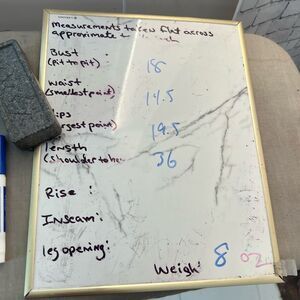 measurements taken flat across
approximate
Bust :
(Pit to pit) 18
Waist
(smallest point) 14.5
ips
argest point) 19.5
length
(shoulder to he 36
Rise :
Inseam :
leg opening :
Weigh 8 oz